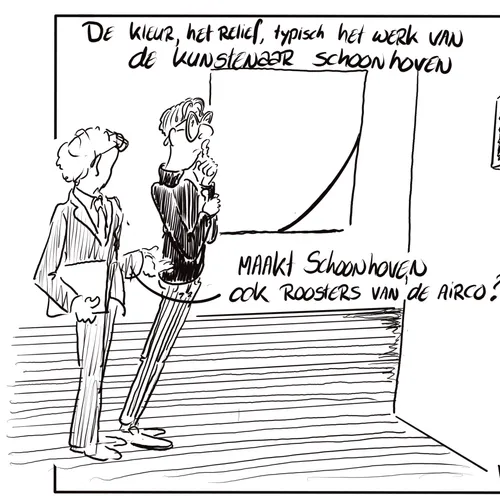 De kleur, het reliëf, typisch het werk van
de kunstenaar Schoonhoven
Maakt Schoonhoven
ook roosters van de airco?